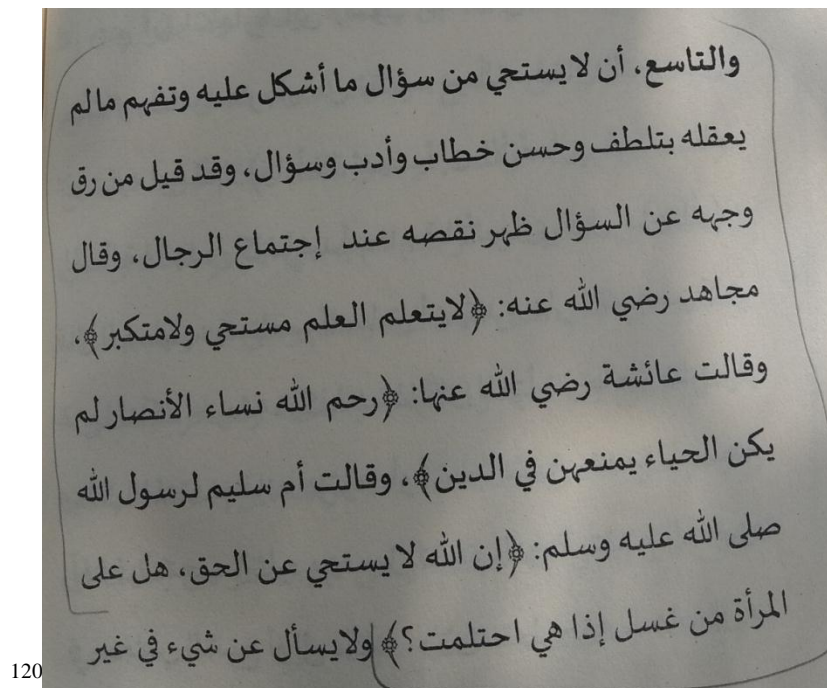 والتاسع، أن لا يستحي من سؤال ما أشكل عليه وتفهم مالم
يعقله بتلطف وحسن خطاب وأدب وسؤال، وقد قيل من رق
وجهه عن السؤال ظهر نقصه عند إجتماع الرجال، وقال
مجاهد رضي الله عنه: ﴿لايتعلم العلم مستحي ولامتكبر﴾،
وقالت عائشة رضي الله عنها: ﴿رحم الله نساء الأنصار لم
يكن الحياء يمنعهن في الدين﴾، وقالت أم سليم لرسول الله
صلى الله عليه وسلم: ﴿إن الله لا يستحي عن الحق، هل على
المرأة من غسل إذا هي احتلمت؟﴾ ولايسأل عن شيء في غير
120